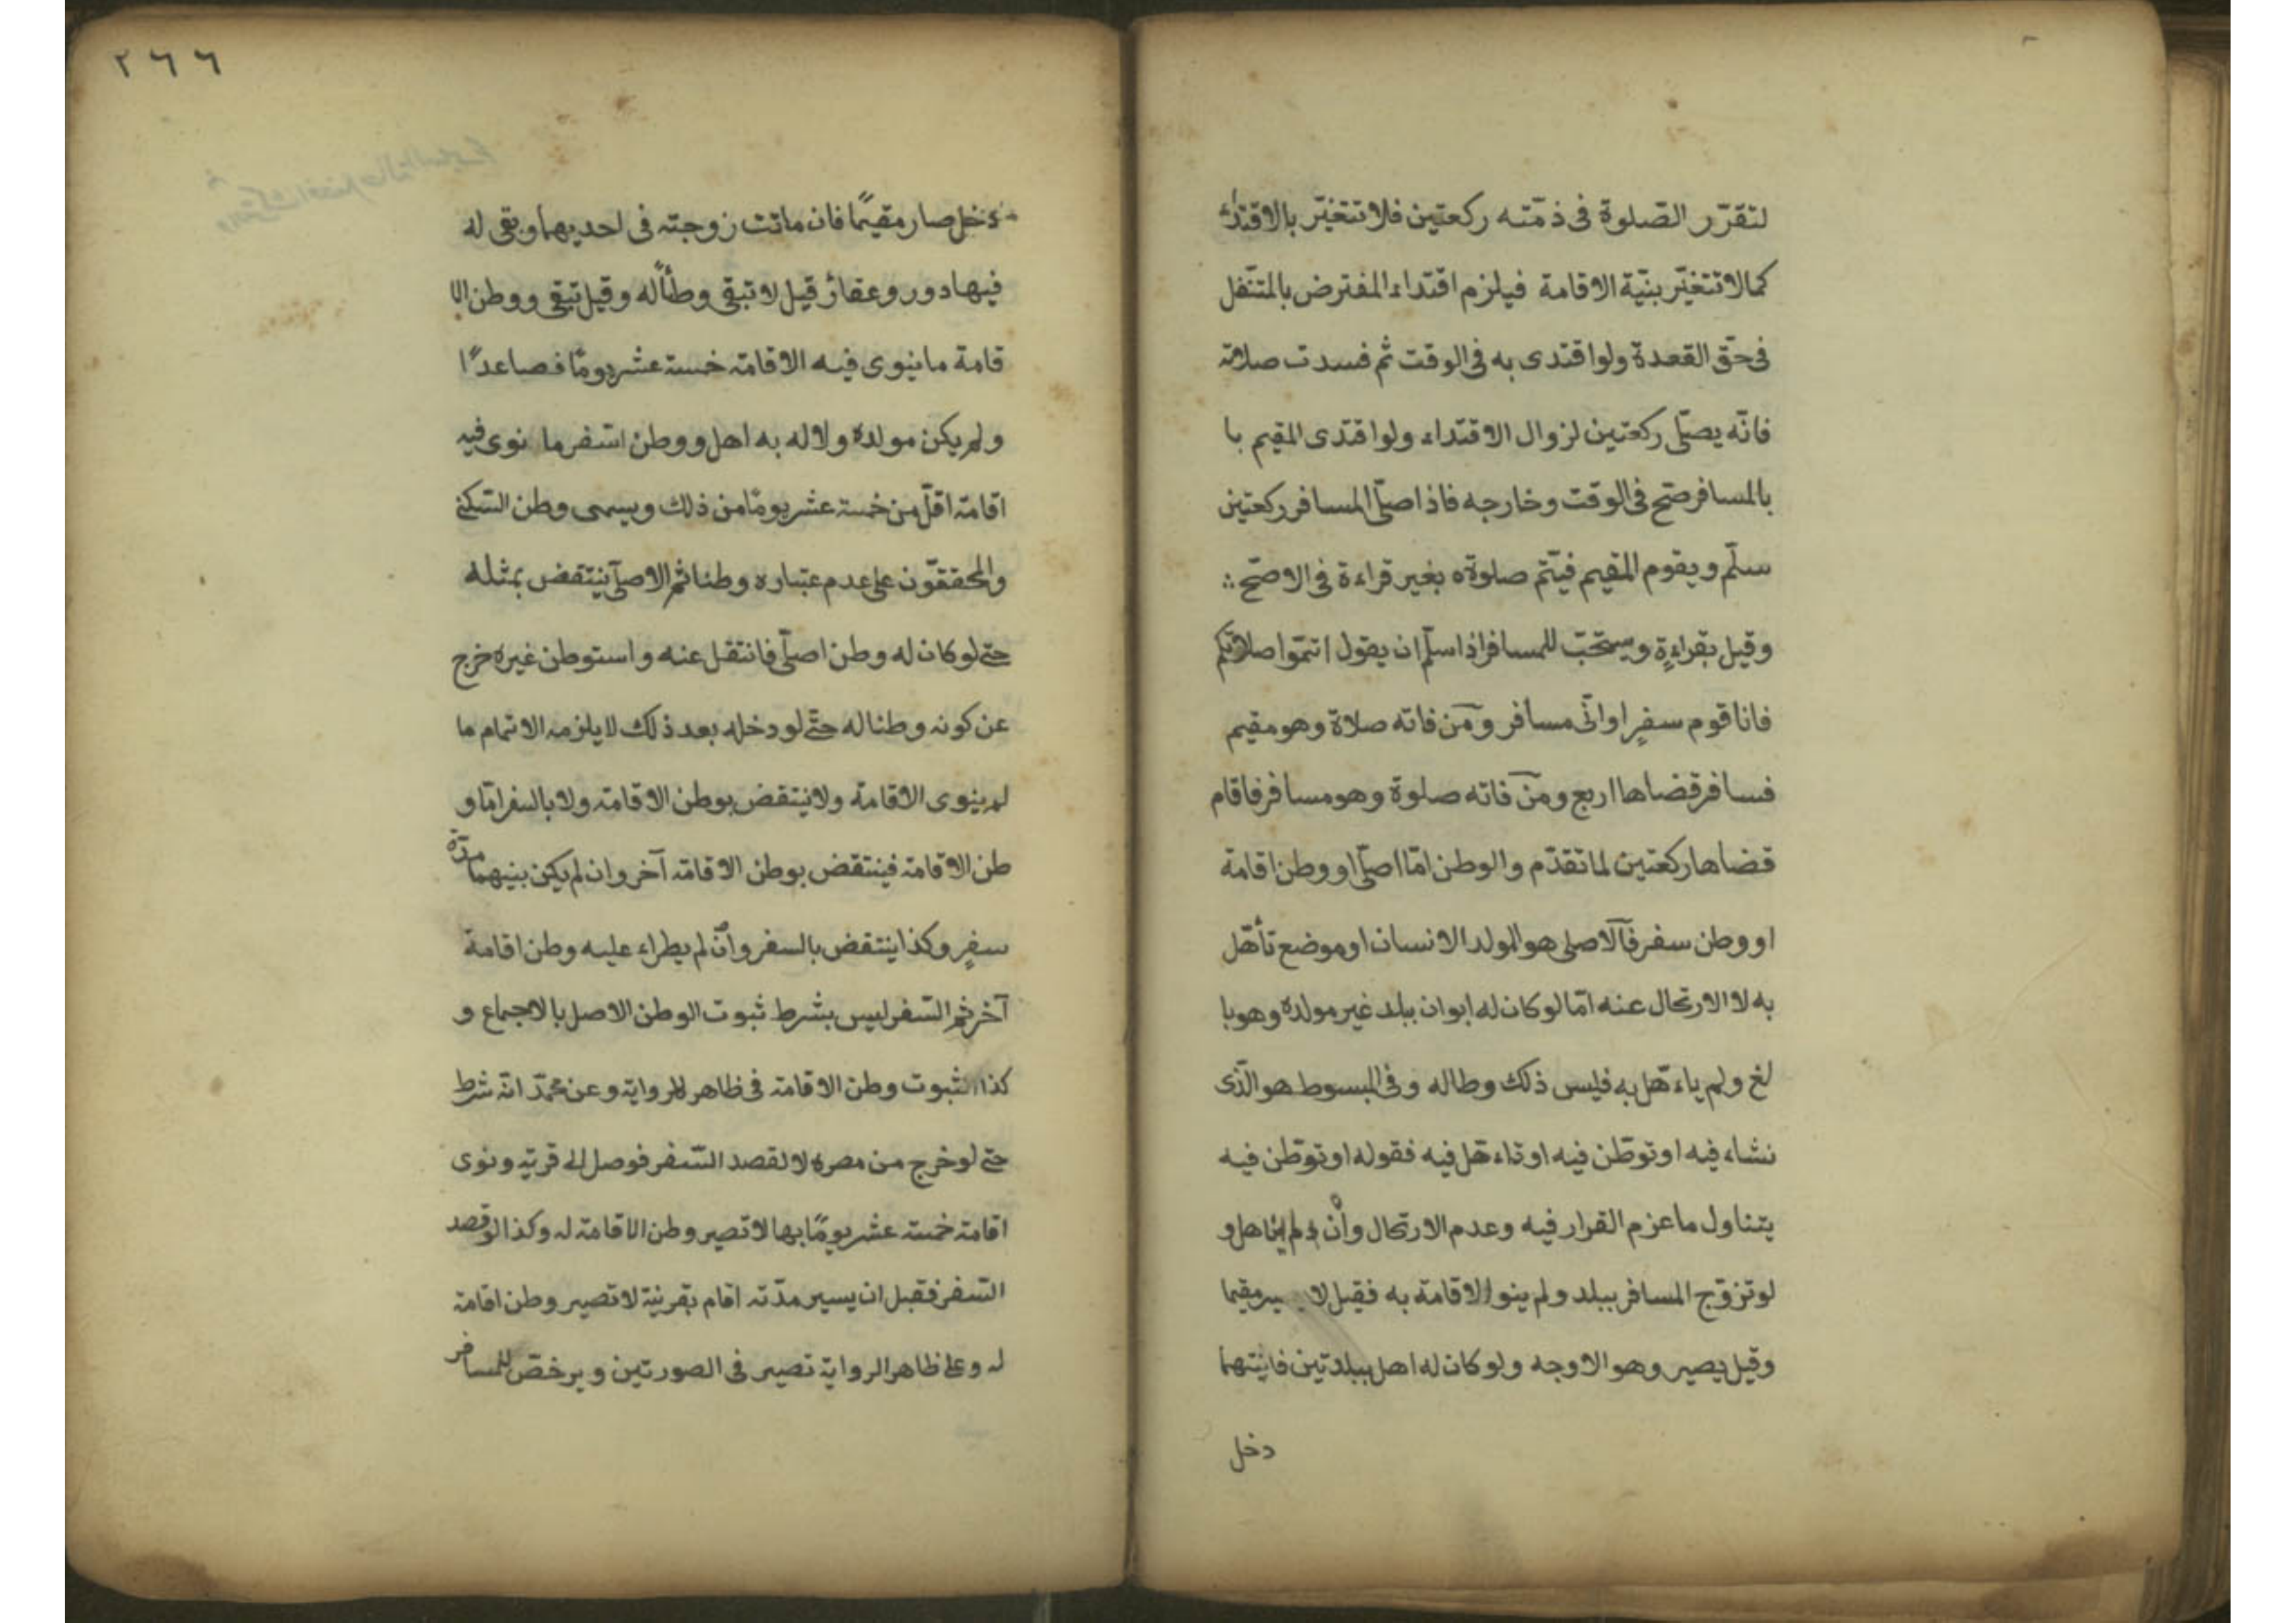 لتقرّر الصّلوة فى ذمّته ركعتين فلا تتغيّر بالاقتداء
كما لا تتغيّر بنيّة الاقامة فيلزم اقتداء المفترض بالمتنّفل
فى حقّ القعدة ولو اقتدى به فى الوقت ثم فسدت صلاته
فانّه يصلّى ركعتين لزوال الاقتداء ولو اقتدى المقيم با
بالمسافر صحّ فى الوقت وخارجه فاذا صلّى المسافر ركعتين
سلّم ويقوم المقيم فيتمّ صلوته بغير قراءة فى الاصحّ
وقيل بقراءةٍ ويستحبّ للمسافر اذا سلّم ان يقول اتمّوا صلاتكم
فانا قوم سفرٍ او انّى مسافر ومن فاته صلاة وهو مقيم
فسافر قضاها اربع ومن فاته صلوة وهو مسافر فاقام
قضاها ركعتين لما تقدّم والوطن امّا اصلّى او وطن اقامة
او وطن سفر فالاصلى هو المولد الانسان او موضع تأهّل
به لا الارتحال عنه امّا لو كان له ابوان ببلد غير مولده وهو با
لغ ولم ياءهّل به فليس ذلك وطاله وفى المبسوط هو الّذى
نشاء فيه او توطّن فيه او تاءهّل فيه فقوله او توطّن فيه
يتناول ما عزم القرار فيه وعدم الارتحال وأن لم يتاهل و
لو تزوّج المسافر ببلد ولم ينو الاقامة به فقيل لا يصير مقيما
وقيل يصير وهو الاوجه ولو كان له اهل ببلدتين فايتهما
دخل
٢٦٦
دخل صار مقيمًا فان ماتت زوجته فى احديهما وبقى له
فيها دور وعقار قيل لا تبقى وطناً له وقيل تبقى ووطن الا
قامة ما ينوى فيه الاقامة خمسة عشر يومًا فصاعدًا
ولم يكن مولده ولا له به اهل ووطن السفر ما نوى فيه
اقامة اقلّ من خمسة عشر يومًا من ذلك ويسمى وطن السّكنى
والمحققّون على عدم عتباره وطنا ثم الاصلّى ينتقض بمثله
حتى لو كان له وطن اصلّى فانتقل عنه واستوطن غيره خرج
عن كونه وطنا له حتّى لو دخله بعد ذلك لا يلزمه الاتمام ما
لم ينوى الاقامة ولا ينتقض بوطن الاقامة ولا بالسفر امّا و
طن الاقامة فينتقض بوطن الاقامة آخر وان لم يكن بينهما مدّة
سفرٍ وكذا ينتقض بالسفر وان لم يطراء عليه وطن اقامة
آخر ثم السّفر ليس بشرط ثبوت الوطن الاصل بالاجماع و
كذا لثبوت وطن الاقامة فى ظاهر الرواية وعن محمّد انّه شرط
حتى لو خرج من مصره لا لقصد السّفر فوصل الى قرية ونوى
اقامة خمسة عشر يومًا بها لا تصير وطن الاقامة له وكذا لو قصد
السّفر فقبل ان يسير مدّته اقام بقرية لا تصير وطن اقامة
له وعلى ظاهر الرواية تصير فى الصورتين ويرخصّ للمسافر